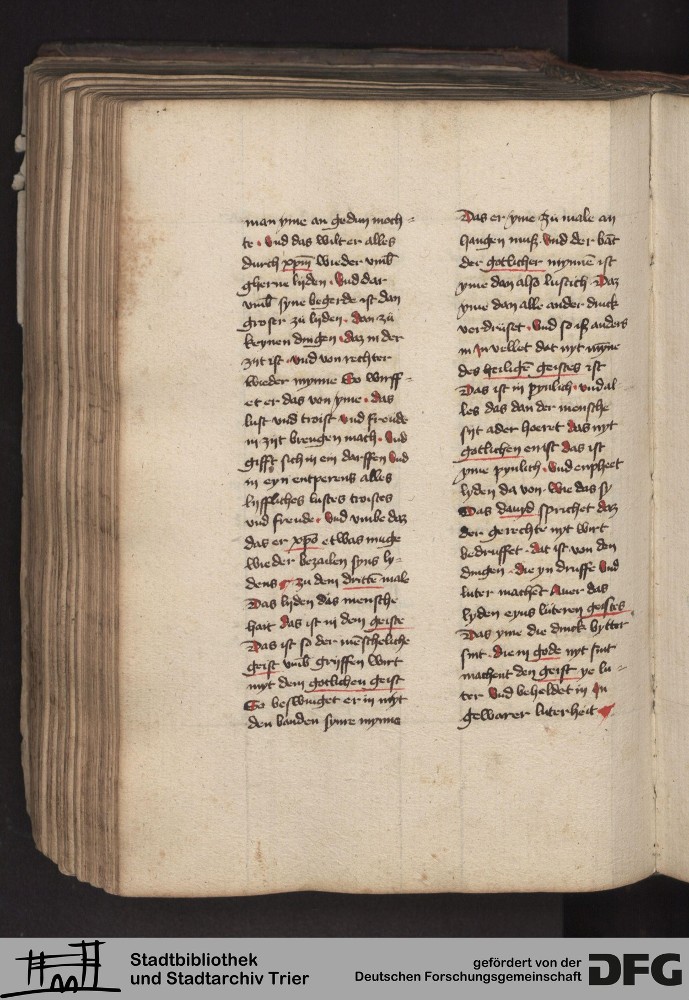 man yme an gedun moch=
te. vnd das wilt er alles
durch xpm̄ wieder vmb
gherne lijden. vnd dar
vmb syne begerde ist dan
groser zu lijden. dan zu
keynen dingen. daz in der
zijt ist. vnd von rechter
wieder mynne So wirff=
et er das von yme. das
lust vnd troist vnd freude
in zijt brengen mach. vnd
gifft sich in ein darffen vnd
in eyn entperens alles
lijffliches lustes troistes
vnd freude. vnd vmbe daz
das er xpō etwas muge
wieder bezailen syns ly-
dens zu dem dritte male
Das lijden das mensche
hait das ist in dem geiste
Das ist so der mēscheliche
geist vmb griffen wirt
myt dem gotlichen geist
So beswinget er in myt
den banden synre mynne
Das er yme zu male an
hangen muß. vnd der bāt
der gotlicher mynnē ist
yme dan also lustich. Daz
yme dan alle ander druck
verdruset. vnd so iß anders
in vellet dat nyt mȳne
des heiligē geistes ist
Das ist in pynlich. vnd al-
les das dan der mensche
siit ader hoeret das nyt
gotlichen en ist das ist
yme pynlich. vnd enpheet
lyden da von. wie das sy
Das dauyd sprichet daz
der gerechte nyt wirt
bedruffet. dat ist von den
dingen. die yn druffe vnd
luter machēt Auer das
lyden eyns luteren geistes.
Das yme die druck bytter
sint. die in gode nyt sint
machent den geist ye lu=
ter vnd beheldet in in
gewarer luterheit
Stadtbibliothek
und Stadtarchiv Trier
gefördert von der
Deutschen Forschungsgemeinschaft
DFG